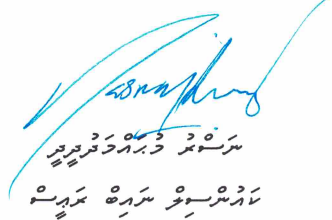 ނަސްރު މުޙައްމަދުދީދީ
ކައުންސިލް ނައިބް ރައީސް